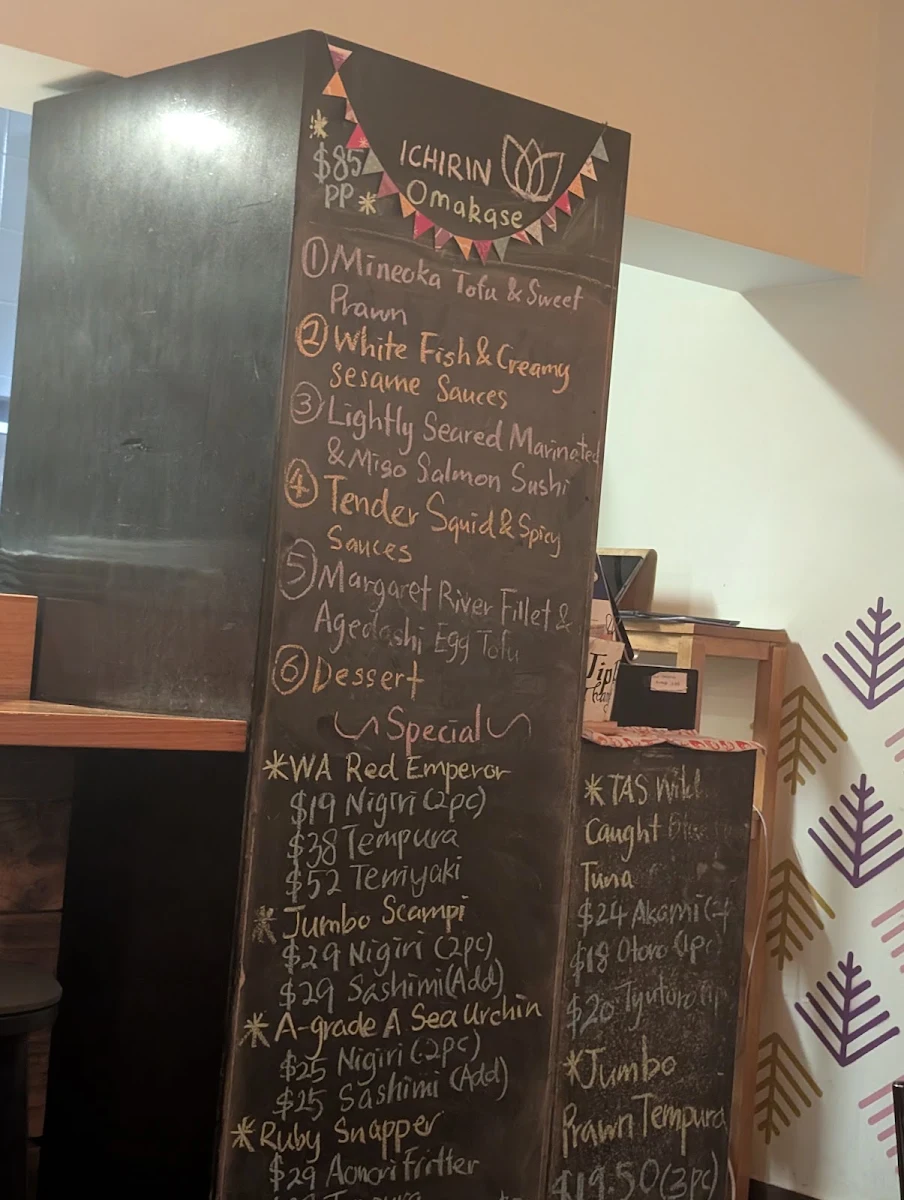 $85
PP
ICHIRIN
Omakase
① Mineoka Tofu & Sweet
Prawn
② White Fish & Creamy
Sesame Sauces
③ Lightly Seared Marinated
& Miso Salmon Sushi
④ Tender Squid & Spicy
Sauces
⑤ Margaret River Fillet &
Agedashi Egg Tofu
⑥ Dessert
Special
*WA Red Emperor
$19 Nigiri (2pc)
$38 Tempura
$52 Terriyaki
*Jumbo Scampi
$29 Nigiri (2pc)
$29 Sashimi (Add)
*A-grade A Sea Urchin
$25 Nigiri (2pc)
$25 Sashimi (Add)
*Ruby Snapper
$29 Aonori Fritter
Tempura
Tip
*TAS Wild
Caught
Tuna
$24 Akami
$18 Otoro (1pc)
$20
*Jumbo
Prawn Tempura
$19.50 (3pc)